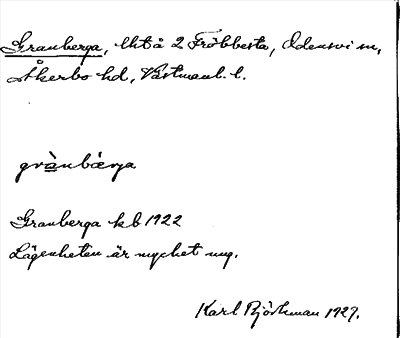 Granberga, lht å 2 Fröbbesta, Odensvi sn,
Åkerbo hd, Västmanl. l.
grànbærja
Granberga kb 1922
Lägenheten är mycket ung.
Karl Björkman 1927.